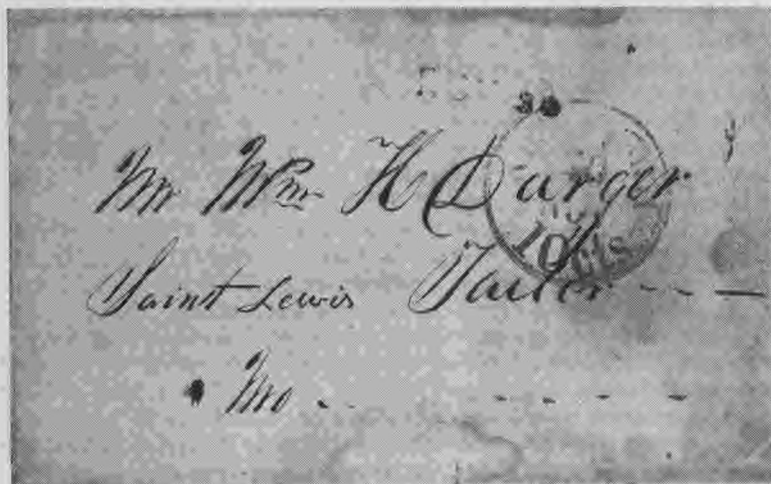 Mr Wm H Darger
Saint Lewis Tailor
Mo